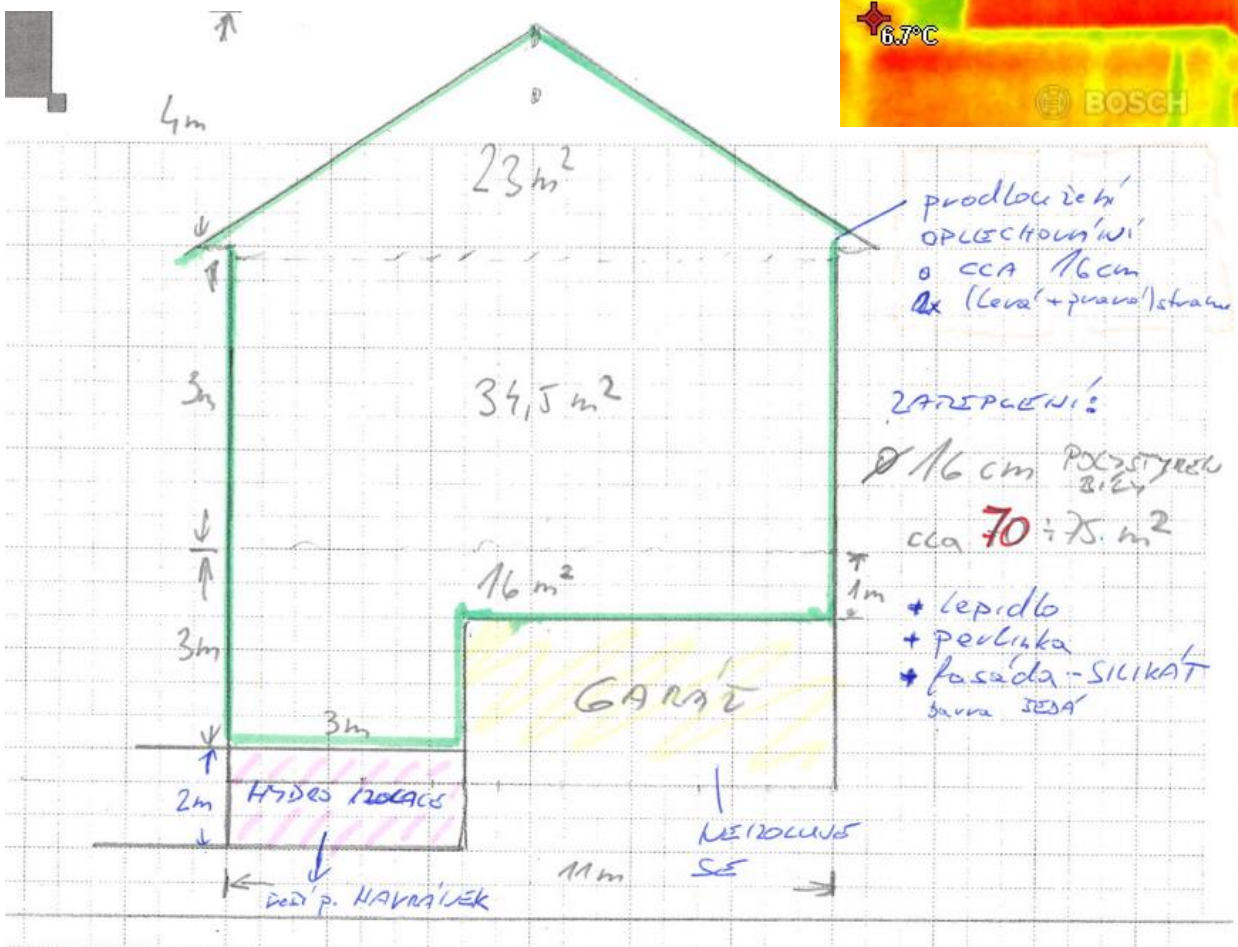 6.7°C
BOSCH
4m
23 m²
prodloužení
OPLECHOVÁNÍ
CCA 16cm
2x (levá + pravá) strana
3m
34,5 m²
ZATEPLENÍ:
Ø 16 cm POLYSTYREN
BÍLÝ
cca 70 ÷ 75 m²
16 m²
1m
+ lepidlo
+ perlinka
+ fasáda - SILIKÁT
barva ŠEDÁ
3m
GARÁŽ
3m
2m
HYDRO IZOLACE
NEIZOLUJE
SE
11m
řeší p. HAVRÁNEK